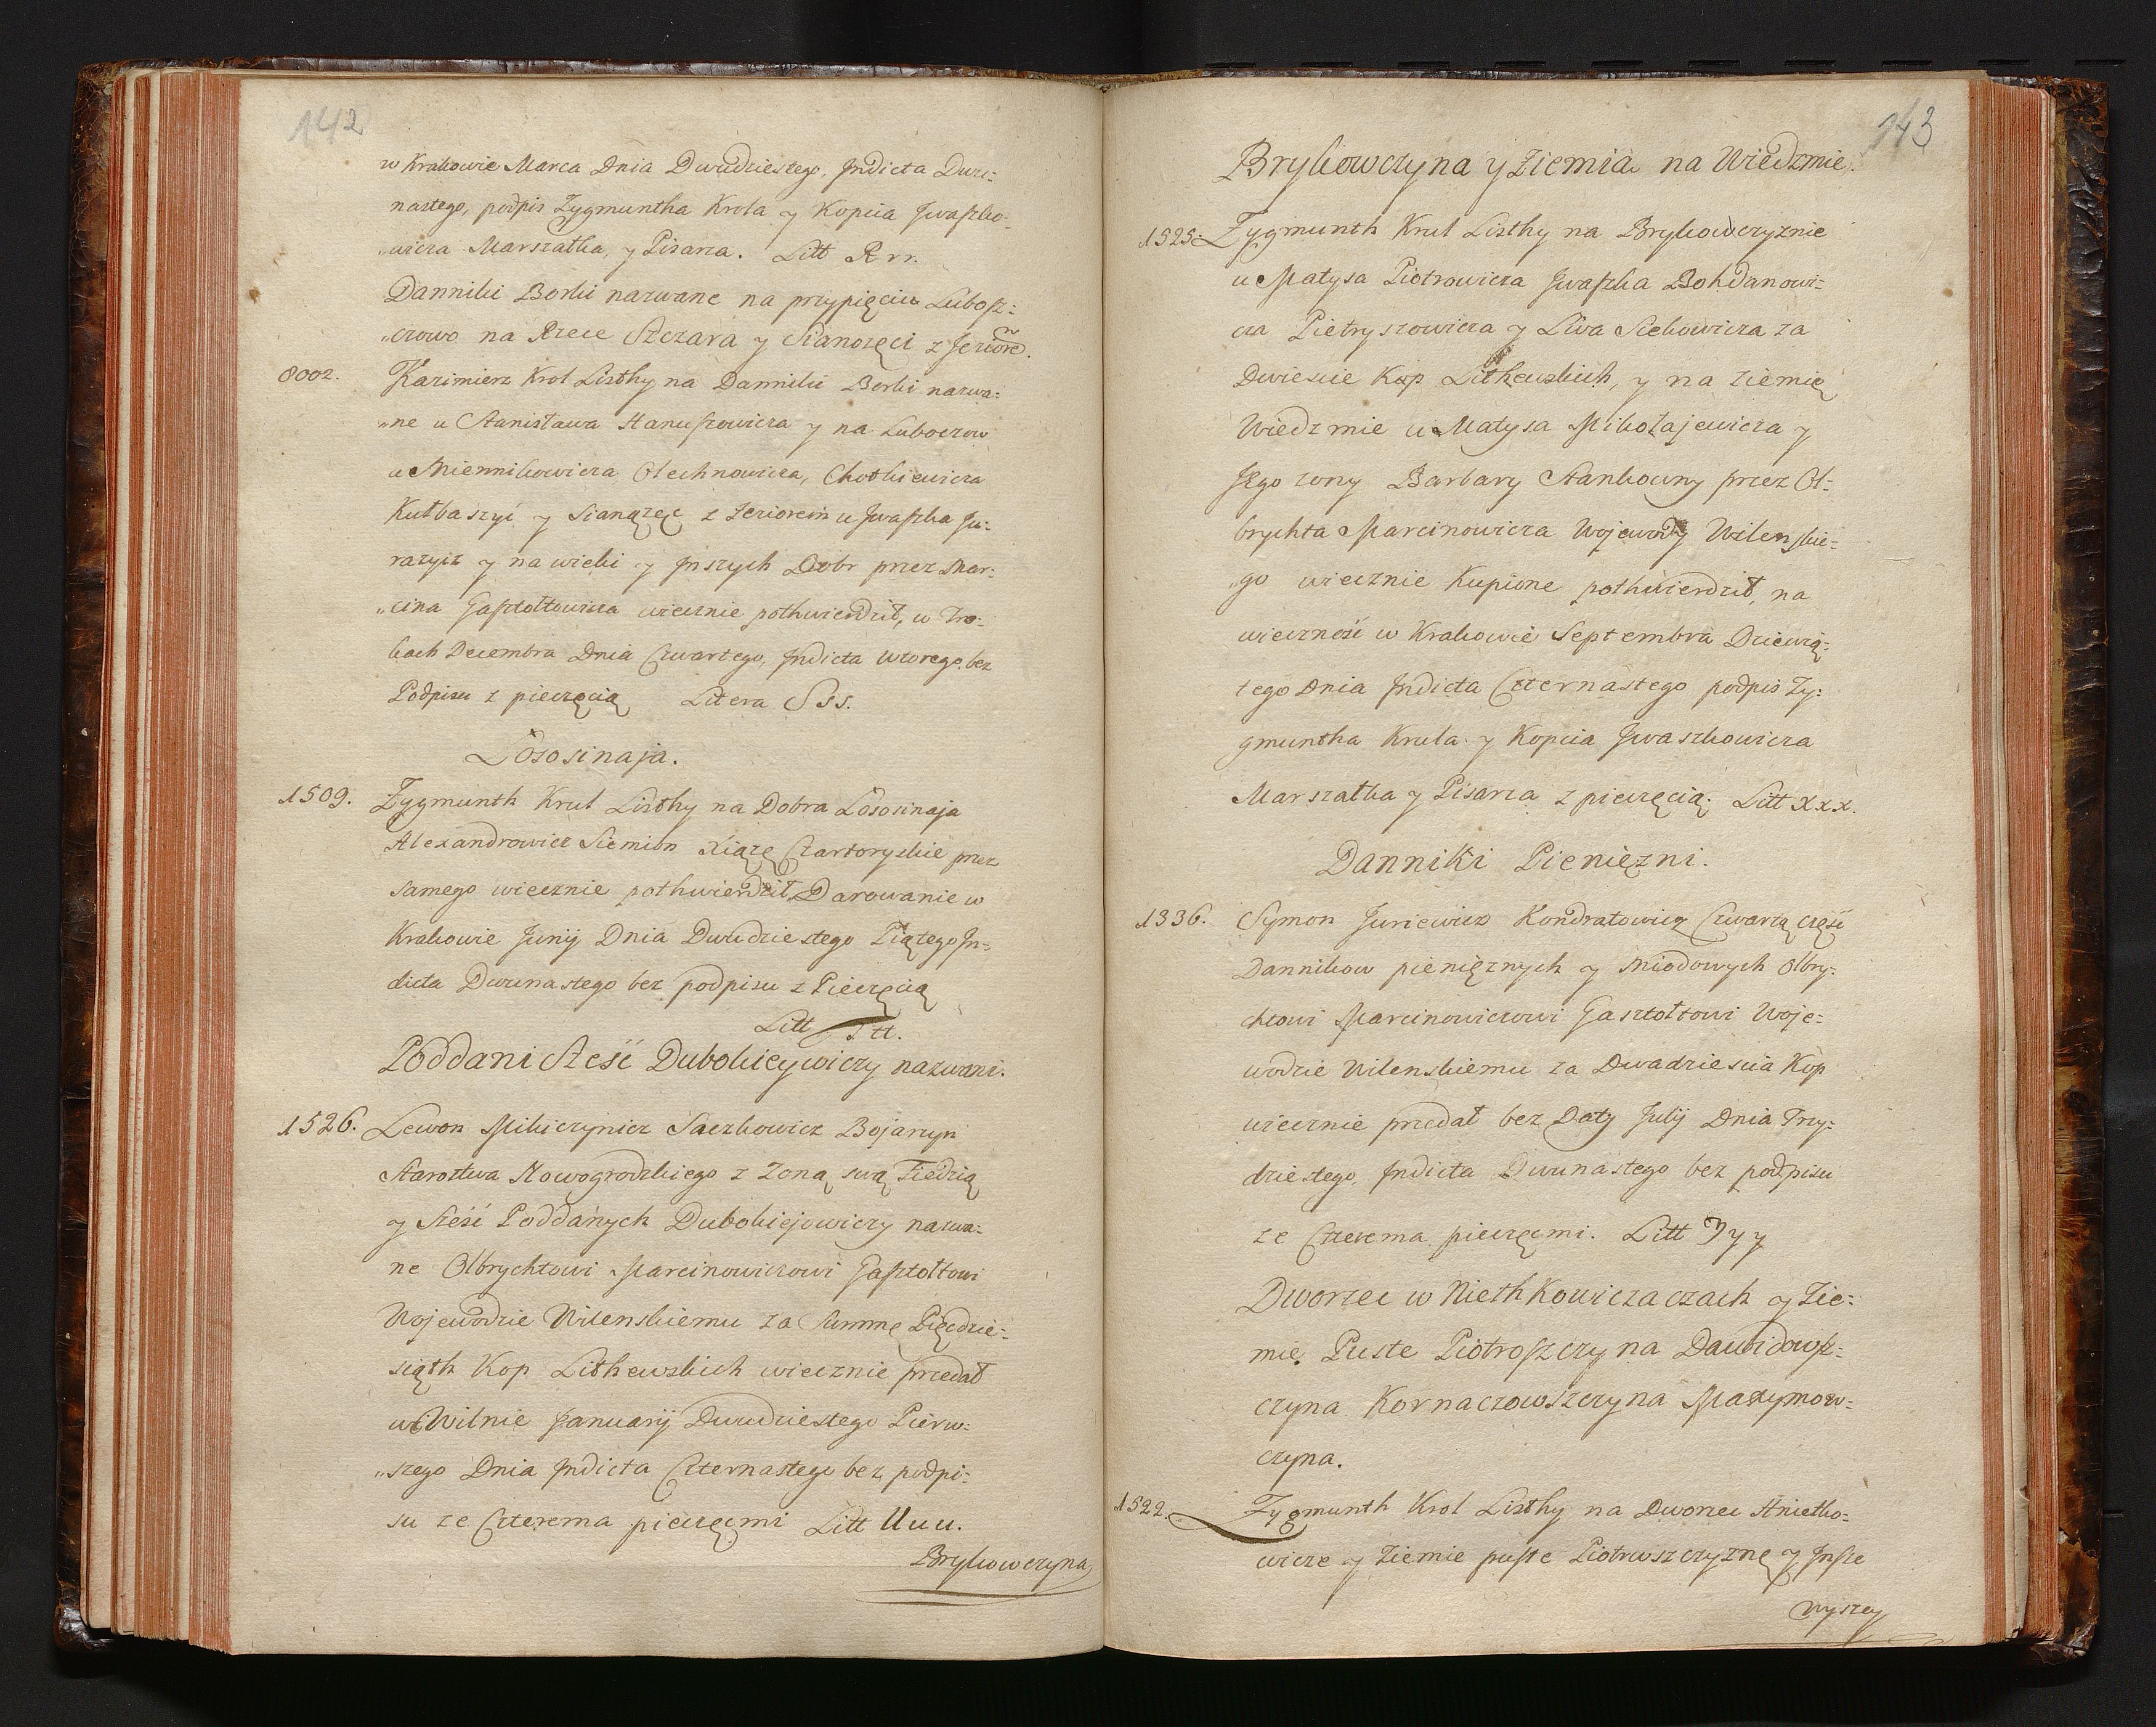 142
w Krakowie Marca Dnia Dwudziestego, Jndicta Dwu=
nastego, podpis Zygmuntha Krola y Kopcia Jwaszko=
„wicza Marszałka, y Pisarza. Litt Rrr.
Danniki Borki nazwane na przypięciu Lubosz=
„czowo na Rzece Szczara y Sianozęci z Jezcore.
8002. Kazimierz Krol Listhy na Danniki Borki nazwa=
„ne u Stanisława Hanuszowicza y na Luboczow
u Miennikowicza Olechnowicza, Chotkiewicza
Kutbaszyi y Sianązęć z Jeziorem u Jwaszka Ju=
raszyc y na wieki y Jnszych Dobr przez Mar=
„cina Gasztołtowicza wiecznie pothwierdził, w Tro=
kach Decembra Dnia Czwartego, Jndicta wtorego, bez
Podpisu z pieczęcią Litera Sss.
Lososinaja.
1509. Zygmunth Krul Listhy na Dobra Lososinaja
Alexandrowicz Siemion Xiążę Czartoryskie przez
samego wiecznie pothwierdził Darowanie w
Krakowie Junij Dnia Dwudziestego Piątego Jn=
dicta Dwunastego bez podpisu z Pieczęcią
Litt Ttt.
Poddani Sześć Dubokieywiczy nazwani.
1526. Lewon Mikiczynicz Saczkowicz Bojaryn
Starostwa Nowogrodzkiego z Zoną swą Fiedzią
y Sześć Poddanych Dubokiejowiczy nazwa=
ne Olbrychtowi Marcinowiczowi Gasztołtowi
Wojewodzie Wilenskiemu za Summę Pięćdzie=
siąth Kop Lithewskich wiecznie przedał
w Wilnie Januarij Dwudziestego Pierw=
„szego Dnia Jndicta Czternastego bez podpi=
su ze Czterema pieczęcmi Litt Uuu.
Brykowczyna
143
Brykowczyna y Ziemia na Wiedzmie.
1525. Zygmunth Krul Listhy na Brykowczyznie
u Matysa Piotrowicza Jwaszka Bohdanowi=
cza Pietryszowicza y Liwa Siekowicza za
Dwiescie Kop Lithewskich, y na ziemię
Wiedzmie u Matysa Mikołajewicza y
Jego zony Barbary Stankowny przez Ol=
brychta Marcinowicza Wojewody Wilenskie=
„go wiecznie Kupione pothwierdził, na
wieczność w Krakowie Septembra Dziewią=
tego Dnia Jndicta Czternastego podpis Zy=
gmuntha Krula y Kopcia Jwaszkowicza
Marszałka y Pisarza z pieczęcią. Litt Xxx.
Danniki Pieniężni.
1336. Symon Juriewicz Kondratowicz Czwartą część
Dannikow pieniężnych y Miodowych Olbry=
chtowi Marcinowiczowi Gasztołtowi Woje=
wodzie Wilenskiemu za Dwadziescia Kop
wiecznie przedał bez Daty Julij Dnia Trzy=
dziestego, Jndicta Dwunastego bez podpisu
ze Czterema pieczęcmi. Litt Yyy
Dworzec w NiethKowiczaczach y Zie=
mię Puste Piotroszczyna Dawidowsz=
czyna Kornaczowszczyna Maxymow=
czyna.
1522. Zygmunth Krol Listhy na Dworzec Anietko=
wicze y Ziemie puste Piotrwszczyznę y Jnsze
wyszey